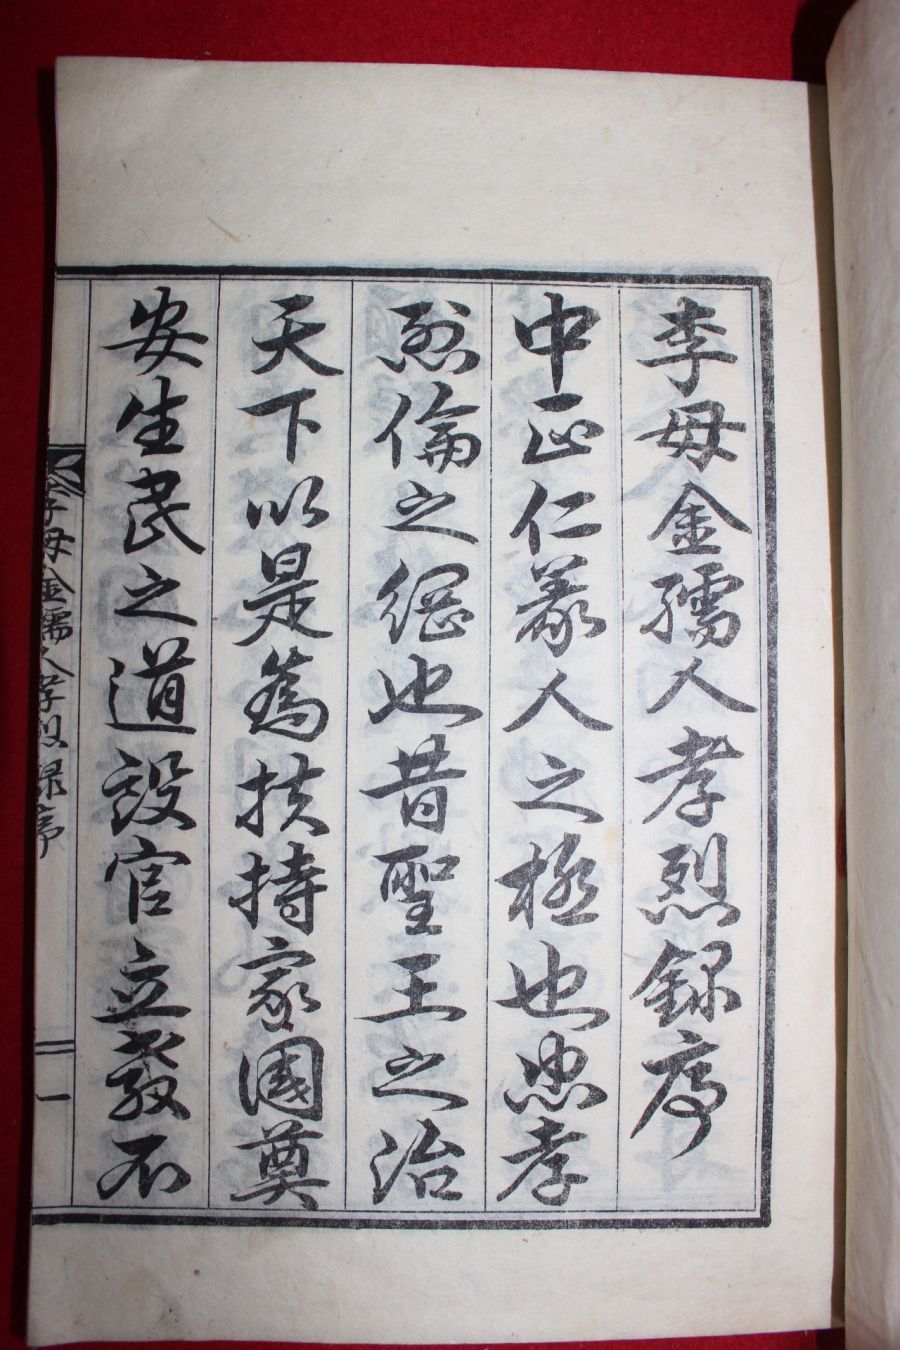 李母金孺人孝烈錄序
中正仁義人之極也忠孝
烈倫之綱也昔聖王之治
天下以是爲扶持家國奠
安生民之道設官立教不
李母金孺人孝烈錄序
一